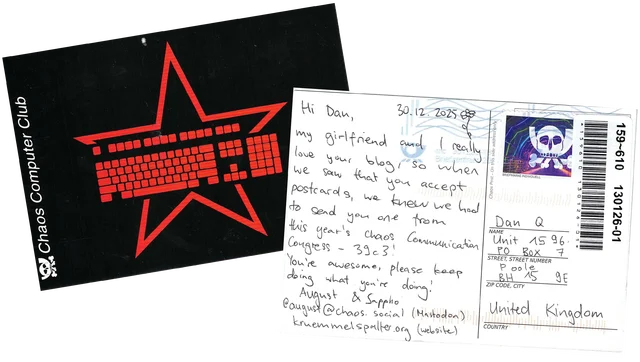 Chaos Computer Club
Hi Dan,
30.12.2025
my girlfriend and I really
love your blog, so when
we saw that you accept
postcards, we knew we had
to send you one from
this year's Chaos Communication
Congress - 39c3!
You're awesome, please keep
doing what you're doing!
August & Sappho
@august@chaos.social (Mastodon)
kruemmelspalter.org (website)
Dan Q
NAME
Unit 1596
PO BOX 7
STREET, STREET NUMBER
Poole
BH 15 9E
ZIP CODE, CITY
United Kingdom
COUNTRY
159-610 130126-01